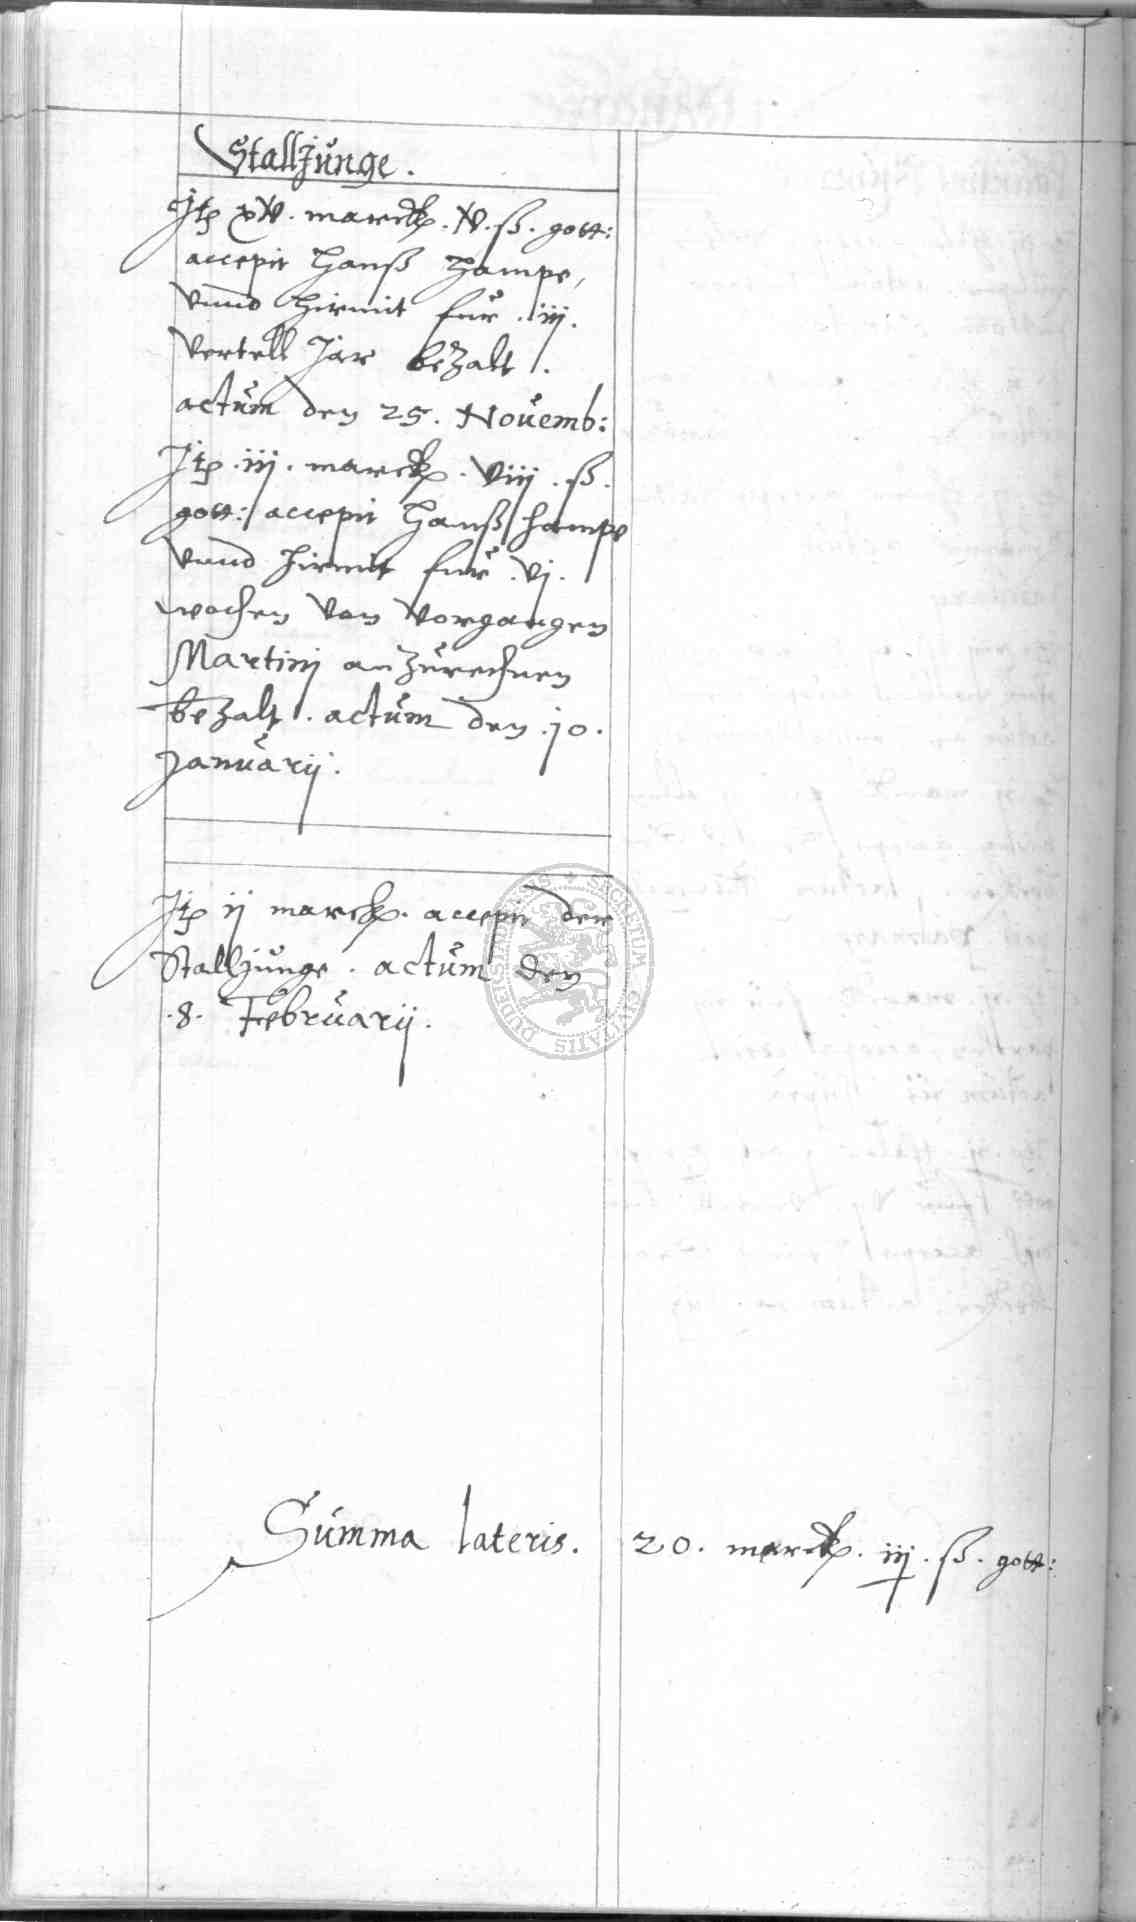 Stalljunge.
Jtē xv. marck. v. ß. gott:
accepit Hanß Hampe,
vnnd hirmit für .iij.
vertell Jar bezalt.
actum den 25. Nouemb:
Jtē .iij. marck. viij. ß.
gott: accepit Hanß hampe
vnnd hirmit für .vj.
wochen von vorgangen
Martinj anzurechnen
bezalt. actum den .10.
Januarij.
Jtē ij marck. accepit der
Stalljunge. actum den
.8. Februarij.
SECRETUM CIVITATIS
Summa lateris. 20. marck. iij. ß. gott: